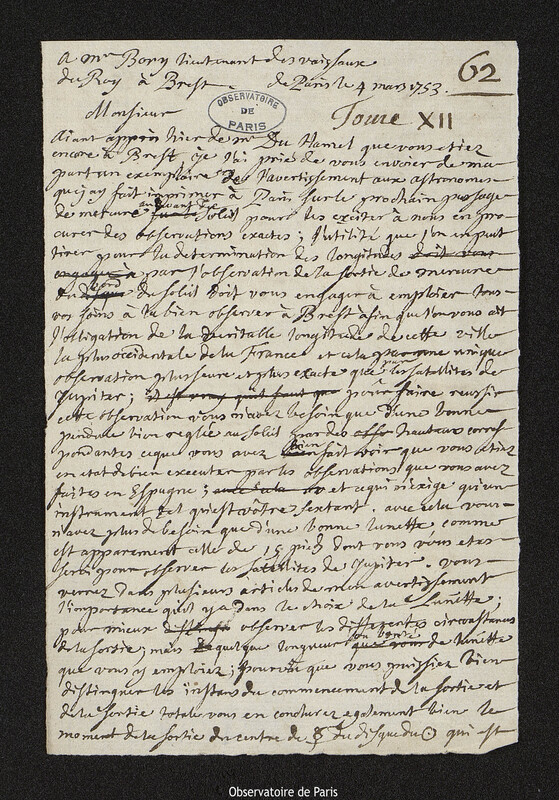 A Mr Bory lieutenant des vaisseaux
du Roy à Brest. de Paris le 4 mars 1753.
62
OBSERVATOIRE DE PARIS
Tome XII
Monsieur
Aiant appris hier de Mr Du Hamel que vous etiez
encore à Brest je l'ai prié de vous envoier de ma
part un exemplaire de l'avertissement aux astronomes
que j'ay fait imprimer à Paris sur le prochain passage
de mercure au devant du Soleil pour les exciter à nous en pro
curer des observations exactes; l'utilité que l'on en peut
tirer pour la determination des longitudes doit vous
engager a par l'observation de la sortie de mercure
du bord du soleil doit vous engager à emploier tous
vos soins à la bien observer à Brest afin que l'on vous ait
l'obligation de la veritable longitude de cette ville
la plus occidentale de la France et cela par une unique
observation plus seure et plus exacte que par les satellites de
Jupiter; il est vray qu'il faut que pour faire reussir
cette observation vous n'avez besoin que d'une bonne
pendule bien reglée au soleil par des hauteurs corres
pondantes ce que vous avez bien fait voir que vous etiez
en etat de bien executer par les observations que vous avez
faites en Espagne; et ce qui n'exige qu'un
instrument tel qu'est vôtre sextant. avec cela vous
n'avez plus de besoin que d'une bonne lunette comme
est apparemment celle de 15 pieds dont vous vous etes
servi pour observer les satellites de Jupiter. vous
verrez dans plusieurs articles de mon avertissement
l'importance qu'il y a dans le choix de la Lunette;
pour mieux observer les differentes circonstances
de la sortie; mais de quelque longueur ou bonté de lunette
que vous y emploiez; pourvû que vous puissiez bien
distinguer les instans du commencement de la sortie et
de la sortie totale vous en conclurez egalement bien le
moment de la sortie du centre de ☿ du disque du ☉ qui est
Observatoire de Paris